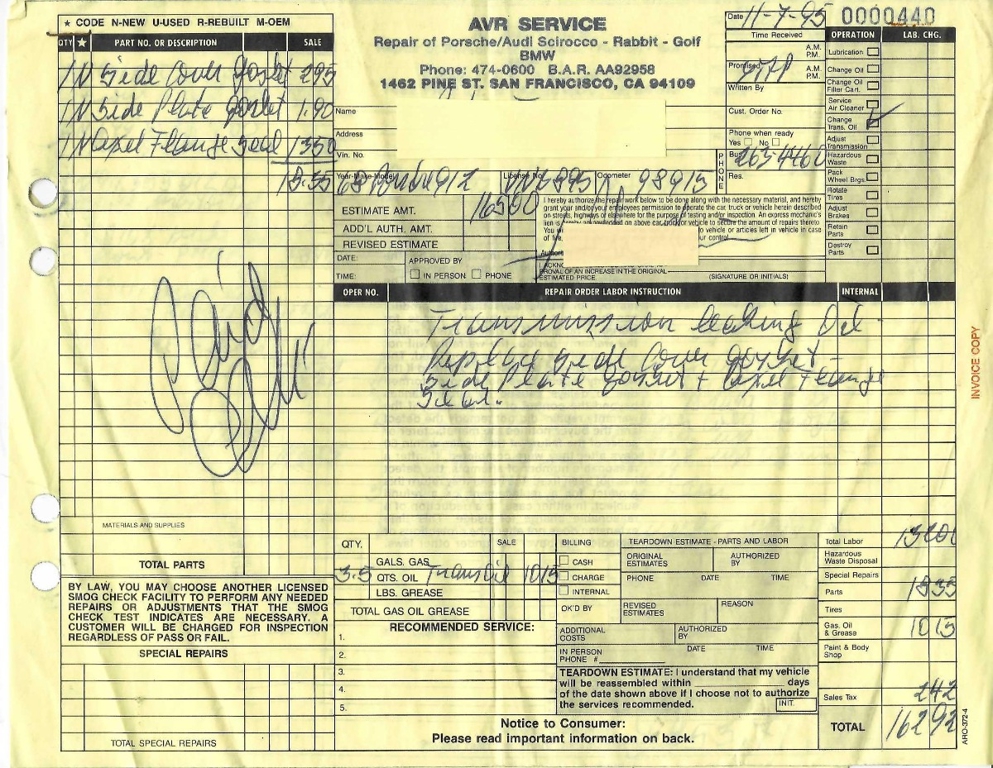 ★ CODE N-NEW U-USED R-REBUILT M-OEM
QTY ★ PART NO. OR DESCRIPTION SALE
1 N Side Cover Gasket 295
1 N Side Plate Gasket 1.90
1 N Axel Flange Seal 1350
MATERIALS AND SUPPLIES
TOTAL PARTS
BY LAW, YOU MAY CHOOSE ANOTHER LICENSED
SMOG CHECK FACILITY TO PERFORM ANY NEEDED
REPAIRS OR ADJUSTMENTS THAT THE SMOG
CHECK TEST INDICATES ARE NECESSARY. A
CUSTOMER WILL BE CHARGED FOR INSPECTION
REGARDLESS OF PASS OR FAIL.
SPECIAL REPAIRS
TOTAL SPECIAL REPAIRS
AVR SERVICE
Repair of Porsche/Audi Scirocco - Rabbit - Golf
BMW
Phone: 474-0600 B.A.R. AA92958
1462 PINE ST. SAN FRANCISCO, CA 94109
Name
Address
Vin. No.
Year-Make-Model License No. Odometer
68 912 98915
ESTIMATE AMT. 16500
ADD'L AUTH. AMT.
REVISED ESTIMATE
DATE: APPROVED BY
TIME: IN PERSON PHONE
I hereby authorize the repair work below to be done along with the necessary material, and hereby
grant you and/or your employees permission to operate the car, truck or vehicle herein described
on streets, highways or elsewhere for the purpose of testing and/or inspection. An express mechanic's
lien is on above car, and/or vehicle to secure the amount of repairs thereto
You to vehicle or articles left in vehicle in case
of your control
PROVAL OF AN INCREASE IN THE ORIGINAL
ESTIMATED PRICE. (SIGNATURE OR INITIALS)
Date 11-7-95 0000440
Time Received
A.M.
P.M.
Promised A.M.
P.M.
Written By
Cust. Order No.
Phone when ready
Yes No
PHONE
Bus. 263-4460
Res.
OPERATION LAB. CHG.
Lubrication
Change Oil
Change Oil
Filter Cart.
Service
Air Cleaner
Change
Trans. Oil
Adjust
Transmission
Hazardous
Waste
Pack
Wheel Brgs.
Rotate
Tires
Adjust
Brakes
Retain
Parts
Destroy
Parts
OPER NO. REPAIR ORDER LABOR INSTRUCTION INTERNAL
Transmission leaking Oil
Replace Side Cover Gasket -
Side Plate Gasket + Axel Flange
Seal.
INVOICE COPY
QTY. SALE
GALS. GAS
3.5 QTS. OIL Trans Oil 1015
LBS. GREASE
TOTAL GAS OIL GREASE
RECOMMENDED SERVICE:
1.
2.
3.
4.
5.
BILLING
CASH
CHARGE
INTERNAL
OK'D BY
TEARDOWN ESTIMATE - PARTS AND LABOR
ORIGINAL
ESTIMATES AUTHORIZED
BY
PHONE DATE TIME
REVISED
ESTIMATES REASON
ADDITIONAL
COSTS AUTHORIZED
BY
IN PERSON
PHONE # DATE TIME
TEARDOWN ESTIMATE: I understand that my vehicle
will be reassembled within days
of the date shown above if I choose not to authorize
the services recommended. INIT.
Notice to Consumer:
Please read important information on back.
Total Labor
Hazardous
Waste Disposal
Special Repairs
Parts 1835
Tires
Gas. Oil
& Grease 1015
Paint & Body
Shop
Sales Tax 242
TOTAL 16292
ARO-372-4